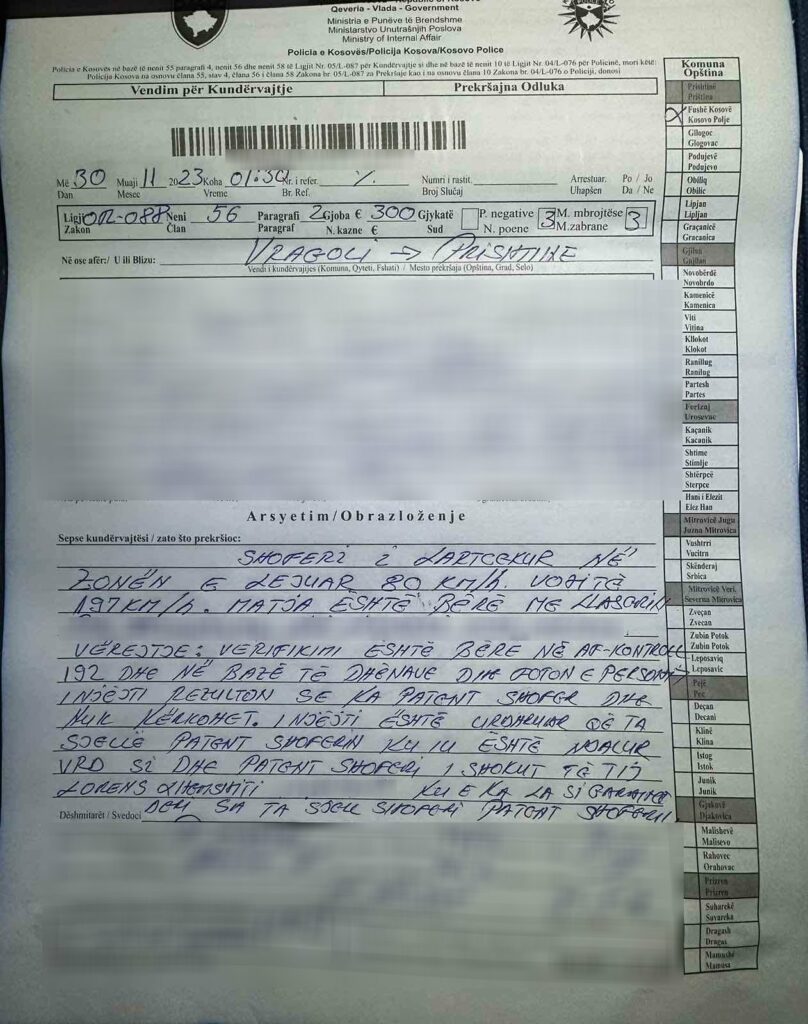 Qeveria - Vlada - Government
Ministria e Punëve të Brendshme
Ministarstvo Unutrašnjih Poslova
Ministry of Internal Affair
Policia e Kosovës/Policija Kosova/Kosovo Police
Policia e Kosovës në bazë të nenit 55 paragrafi 4, nenit 56 dhe nenit 58 të Ligjit Nr. 05/L-087 për Kundërvajtje si dhe në bazë të nenit 10 të Ligjit Nr. 04/L-076 për Policinë, mori këtë:
Policija Kosova na osnovu člana 55, stav 4, člana 56 i člana 58 Zakona br. 05/L-087 za Prekršaje kao i na osnovu člana 10 Zakona br. 04/L-076 o Policiji, donosi
Vendim për Kundërvajtje Prekršajna Odluka
Më 30 Muaji 11 2023 Koha 01:30 Nr. i refer. Numri i rastit. Arrestuar. Po / Jo
Dan Mesec Vreme Br. Ref. Broj Slućaj Uhapšen Da / Ne
Ligji 02-088 Neni 56 Paragrafi 2 Gjoba € 300 Gjykatë P. negative 3 M. mbrojtëse 3
Zakon Član Paragraf N. kazne € Sud N. poene M.zabrane
Në ose afër:/ U ili Blizu: VRAGOLI → PRISHTINË
Vendi i kundërvajtjes (Komuna, Qyteti, Fshati) / Mesto prekršaja (Opština, Grad, Selo)
Arsyetim/Obrazloženje
Sepse kundërvajtësi / zato što prekršioc:
SHOFERI I LARTCEKUR NË
ZONËN E LEJUAR 80 KM/h. VOZITË
197 KM/h. MATJA ËSHTË BËRË ME LLASERIN
VËREJTJE: VERIFIKIMI ËSHTË BËRE NË AF-KONTROLL
192 DHE NË BAZË TË DHËNAVE DHE FOTON E PERSONIT
I NJËJTI REZULTON SE KA PATENT SHOFER DHE
NUK KËRKOHET. I NJËJTI ËSHTË URDHRUAR QË TA
SJELLË PATENT SHOFERIN KU IU ËSHTË NDALUR
VRD SI DHE PATENT SHOFERI I SHOKUT TË TIJ
LORENS KU E KA LA SI GARANCE
Dëshmitarët / Svedoci DERI SA TA SJELL SHOFERI PATENT SHOFERIN
Komuna
Opština
Prishtinë
Priština
Fushë Kosovë
Kosovo Polje
Gllogoc
Glogovac
Podujevë
Podujevo
Obiliq
Obilic
Lipjan
Lipljan
Graçanicë
Gracanica
Gjilan
Gnjilan
Novobërdë
Novobrdo
Kamenicë
Kamenica
Viti
Vitina
Kllokot
Klokot
Ranillug
Ranilug
Partesh
Partes
Ferizaj
Urosevac
Kaçanik
Kacanik
Shtime
Stimlje
Shtërpcë
Sterpce
Hani i Elezit
Elez Han
Mitrovicë Jugu
Juzna Mitrovica
Vushtrri
Vucitrn
Skënderaj
Srbica
Mitrovicë Veri.
Severna Mitrovica
Zveçan
Zvecan
Zubin Potok
Zubin Potok
Leposaviq
Leposavic
Pejë
Pec
Deçan
Decani
Klinë
Klina
Istog
Istok
Junik
Junik
Gjakovë
Djakovica
Malishevë
Malisevo
Rahovec
Orahovac
Prizren
Prizren
Suharekë
Suvareka
Dragash
Dragas
Mamushë
Mamusa